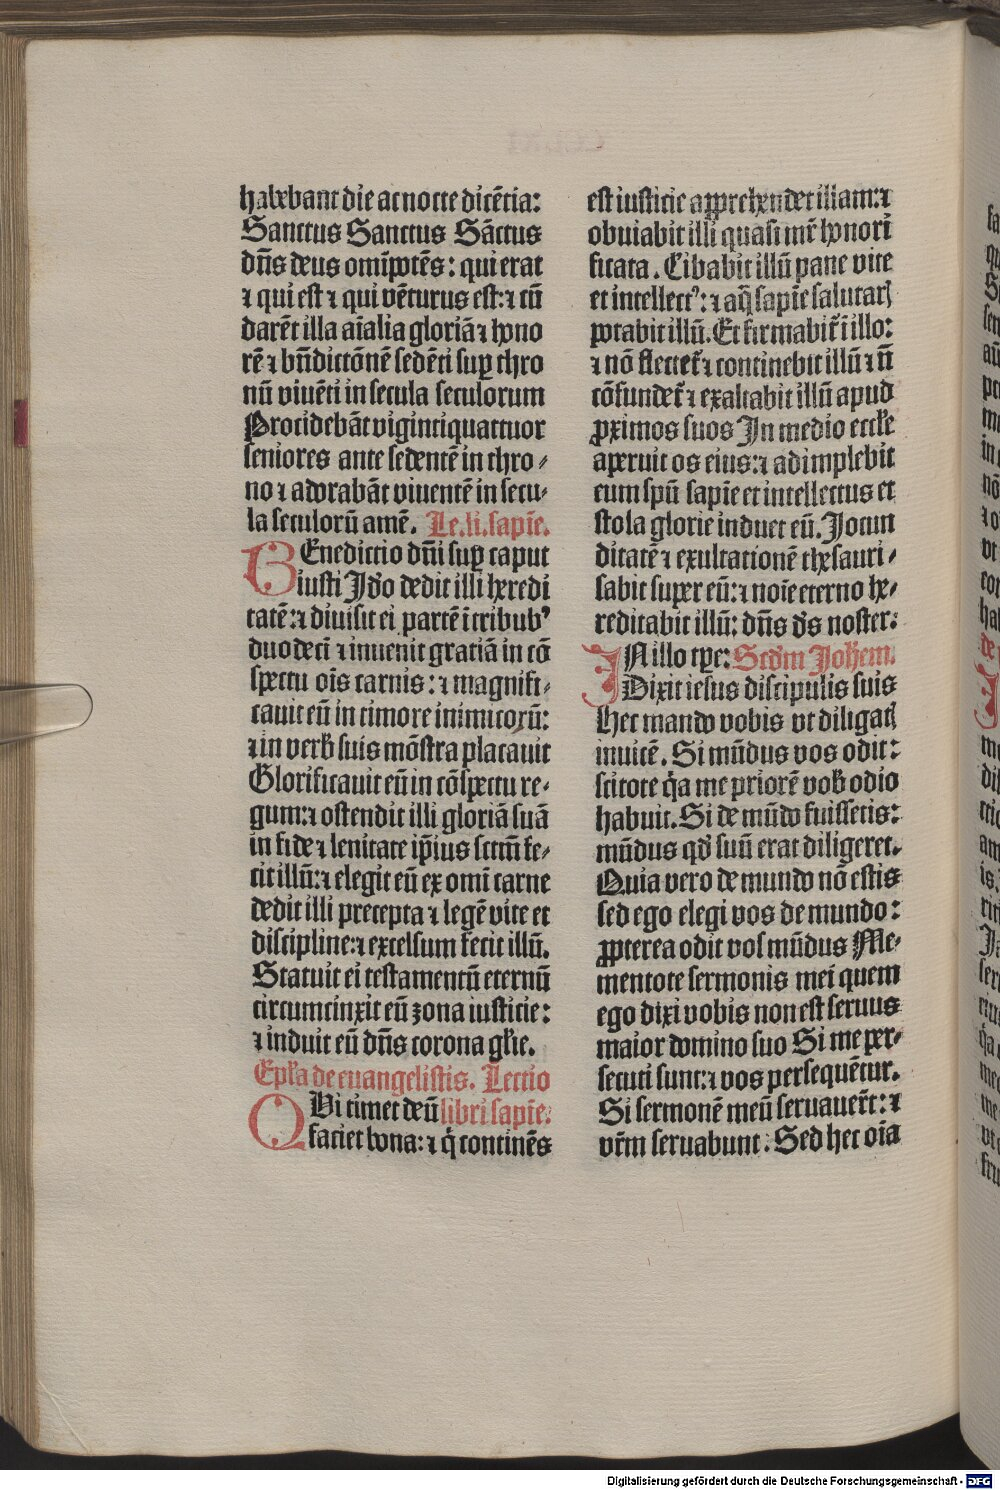 habebant die ac nocte dicẽtia:
Sanctus Sanctus Sãctus
dñs deus omĩpotẽs: qui erat
⁊ qui est ⁊ qui vẽturus est:⁊ cũ
darẽt illa aĩalia gloriã ⁊ hono
rẽ ⁊ bñdictõnẽ sedẽti suꝑ thro
nũ viuẽti in secula seculorum
Procidebãt vigintiquattuor
seniores ante sedentẽ in thro-
no ⁊ adorabãt viuentẽ in secu-
la seculorũ amẽ. Le.li.sapiẽ.
BEnedictio dñi suꝑ caput
iusti Jdo dedit illi heredi
tatẽ:⁊ diuisit ei partẽ ĩ tribub⁹
duodecĩ ⁊ inuenit gratiã in cõ
spectu oĩs carnis:⁊ magnifi-
cauit eũ in timore inimicorũ:
⁊ in verb̃ suis mõstra placauit
Glorificauit eũ in cõspectu re-
gum:⁊ ostendit illi gloriã suã
in fide ⁊ lenitate ip̃ius sctm̃ fe-
cit illũ:⁊ elegit eũ ex omĩ carne
dedit illi precepta ⁊ legẽ vite et
discipline:⁊ excelsum fecit illũ.
Statuit ei testamentũ eternũ
circumcinxit eũ zona iusticie:
⁊ induit eũ dñs corona gl̃ie.
Epl̃a de euangelistis. Lectio
QVi timet deũ libri sapiẽ.
faciet bona:⁊ q̇ continẽs
est iusticie apprehendet illam:⁊
obuiabit illi quasi mr̃ honori
ficata. Cibabit illũ pane vite
et intellect⁹:⁊ aq̃ sapiẽ salutarꝭ
potabit illũ. Et firmabit̃ ĩ illo:
⁊ nõ flectet̃ ⁊ continebit illũ ⁊ ñ
cõfundet̃ ⁊ exaltabit illũ apud
ꝓximos suos Jn medio eccl̃e
aperuit os eius:⁊ adimplebit
eum spũ sapiẽ et intellectus et
stola glorie induet eũ. Jocun
ditatẽ ⁊ exultationẽ thesauri-
sabit super eũ:⁊ noĩe eterno he-
reditabit illũ: dñs ds̃ noster:
JN illo tꝑe: Scdm̃ Joh̃em.
Dixit iesus discipulis suis
Hec mando vobis vt diligatꝭ
inuicẽ. Si mũdus vos odit:
scitote q̇a me priorẽ vob̃ odio
habuit. Si de mũdo fuissetis:
mũdus qd̃ suũ erat diligeret.
Quia vero de mundo nõ estis
sed ego elegi vos de mundo:
ꝓpterea odit vos mũdus Me-
mentote sermonis mei quem
ego dixi vobis non est seruus
maior domino suo Si me per-
secuti sunt:⁊ vos persequẽtur.
Si sermonẽ meũ seruauer̃t:⁊
vr̃m seruabunt. Sed hec oĩa
Digitalisierung gefördert durch die Deutsche Forschungsgemeinschaft - DFG